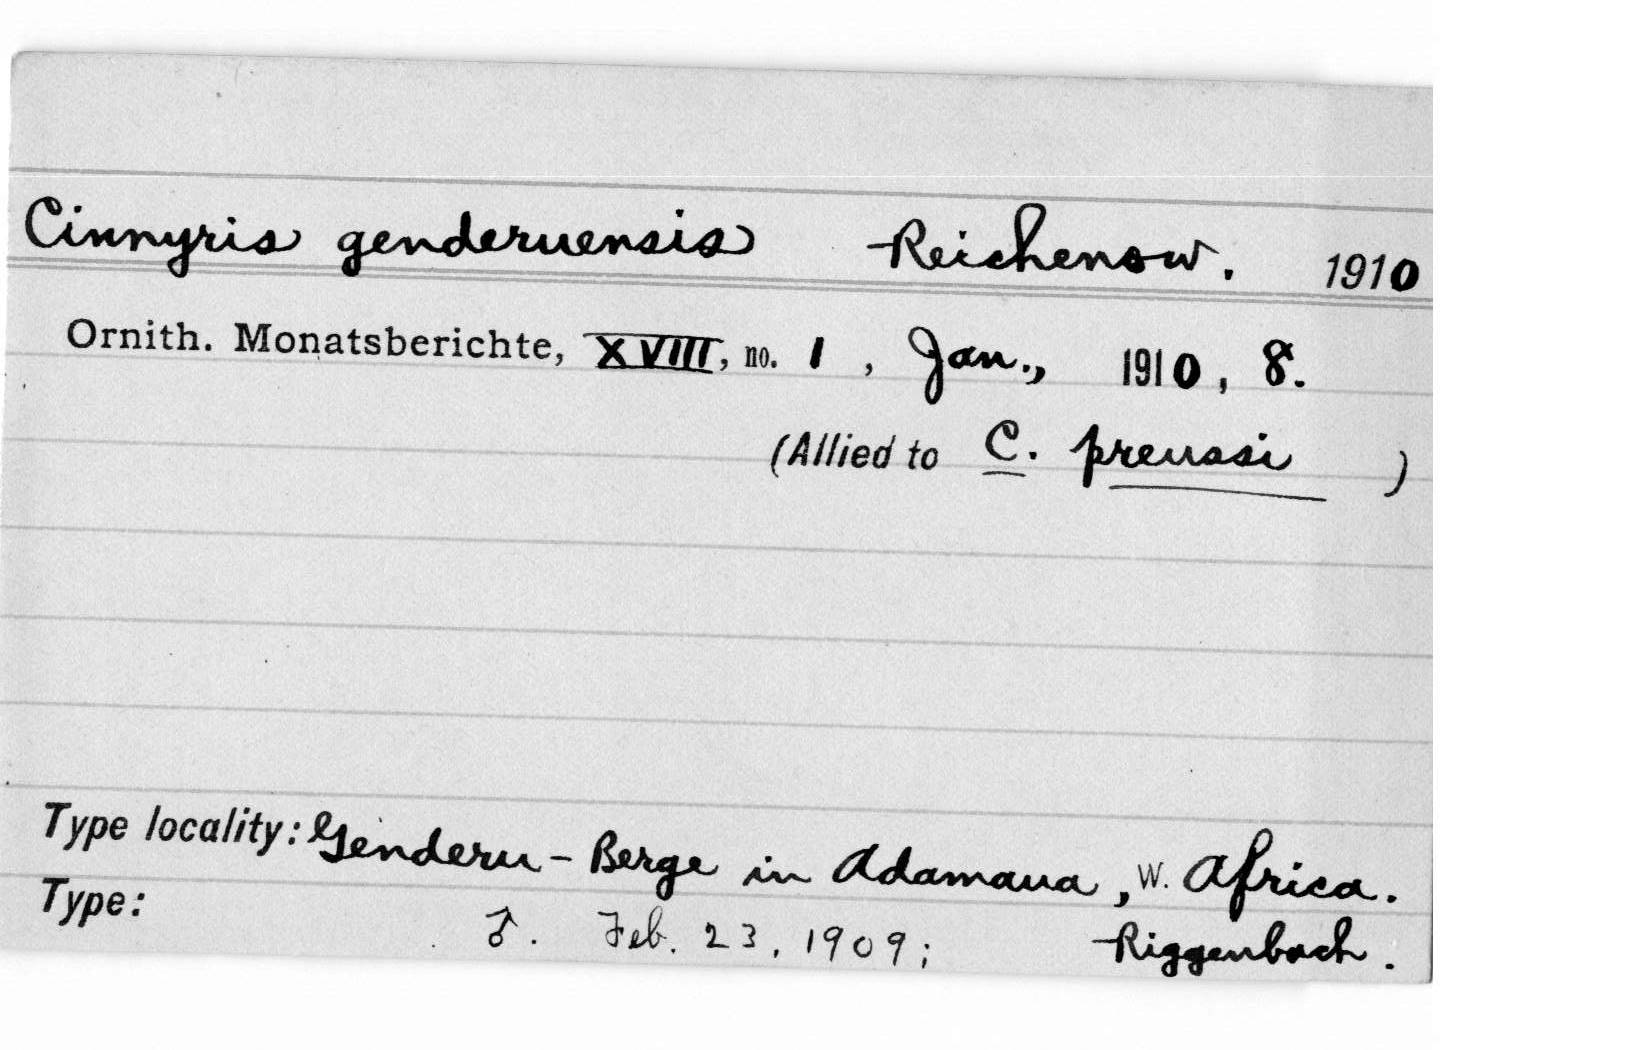 Cinnyris genderuensis Reichenow. 1910
Ornith. Monatsberichte, XVIII, no. 1, Jan., 1910, 8.
(Allied to C. preussi )
Type locality: Genderu - Berge in Adamaua, W. Africa.
Type: ♂. Feb. 23, 1909; Riggenbach.